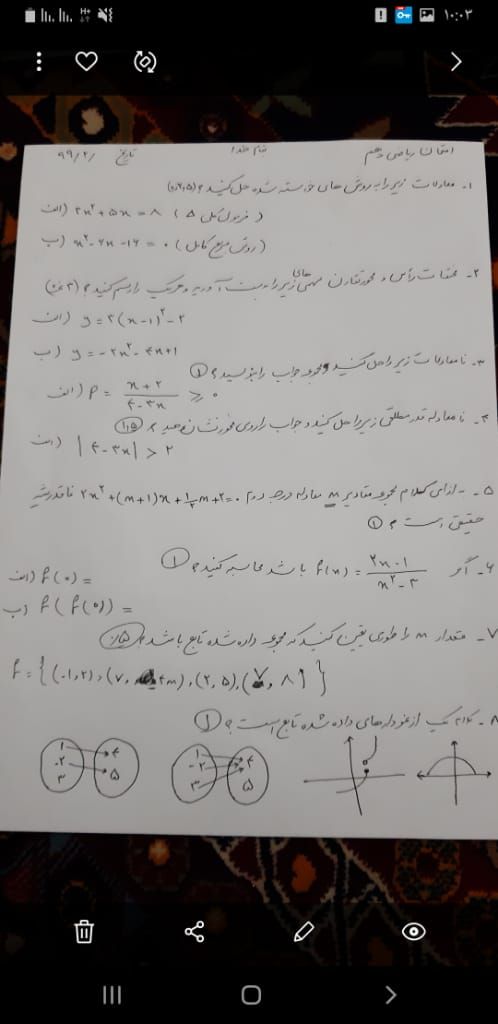 ۱۰:۰۳
امتحان ریاضی دهم
تاریخ ۹۹/۲/
۱- معادلات زیر را به روش های خواسته شده حل کنید؟ (۲٫۵)
الف) ۲x²+۵x=۸ (فرمول کلی Δ)
ب) x²-۶x-۱۶=۰ (روش مربع کامل)
۲- مختصات رأس و محور تقارن سهمی های زیر را بدست آورید و هر یک را رسم کنید؟
الف) y=۲(x-۱)²-۲
ب) y=-۲x²-۴x+۱
۳- نامعادلات زیر را حل کنید و مجموعه جواب را بنویسید؟ ①
الف) P = (x+۲)/(۴-۳x) ≥ ۰
۴- نامعادله قدر مطلقی زیر را حل کنید و جواب را روی محور نشان دهید؟ (۱٫۵)
الف) |۴-۳x| > ۲
۵- به ازای کدام مجموعه مقادیر m معادله درجه دوم ۲x²+(m+۱)x+½m+۲=۰ فاقد ریشه
حقیقی است؟ ①
۶- اگر f(x) = (۲x-۱)/(x²-۳) باشد محاسبه کنید؟ ①
الف) f(۰) =
ب) f(f(۰)) =
۷- مقدار m را طوری تعیین کنید که مجموعه داده شده تابع باشد؟
f={(-۱,۲),(۷, ۴m),(۲,۵),(۷,۸)}
۸- کدام یک از نمودارهای داده شده تابع است؟ ①
۱ ۴
۲ ۵
۳
۱ ۴
۲
۳ ۵